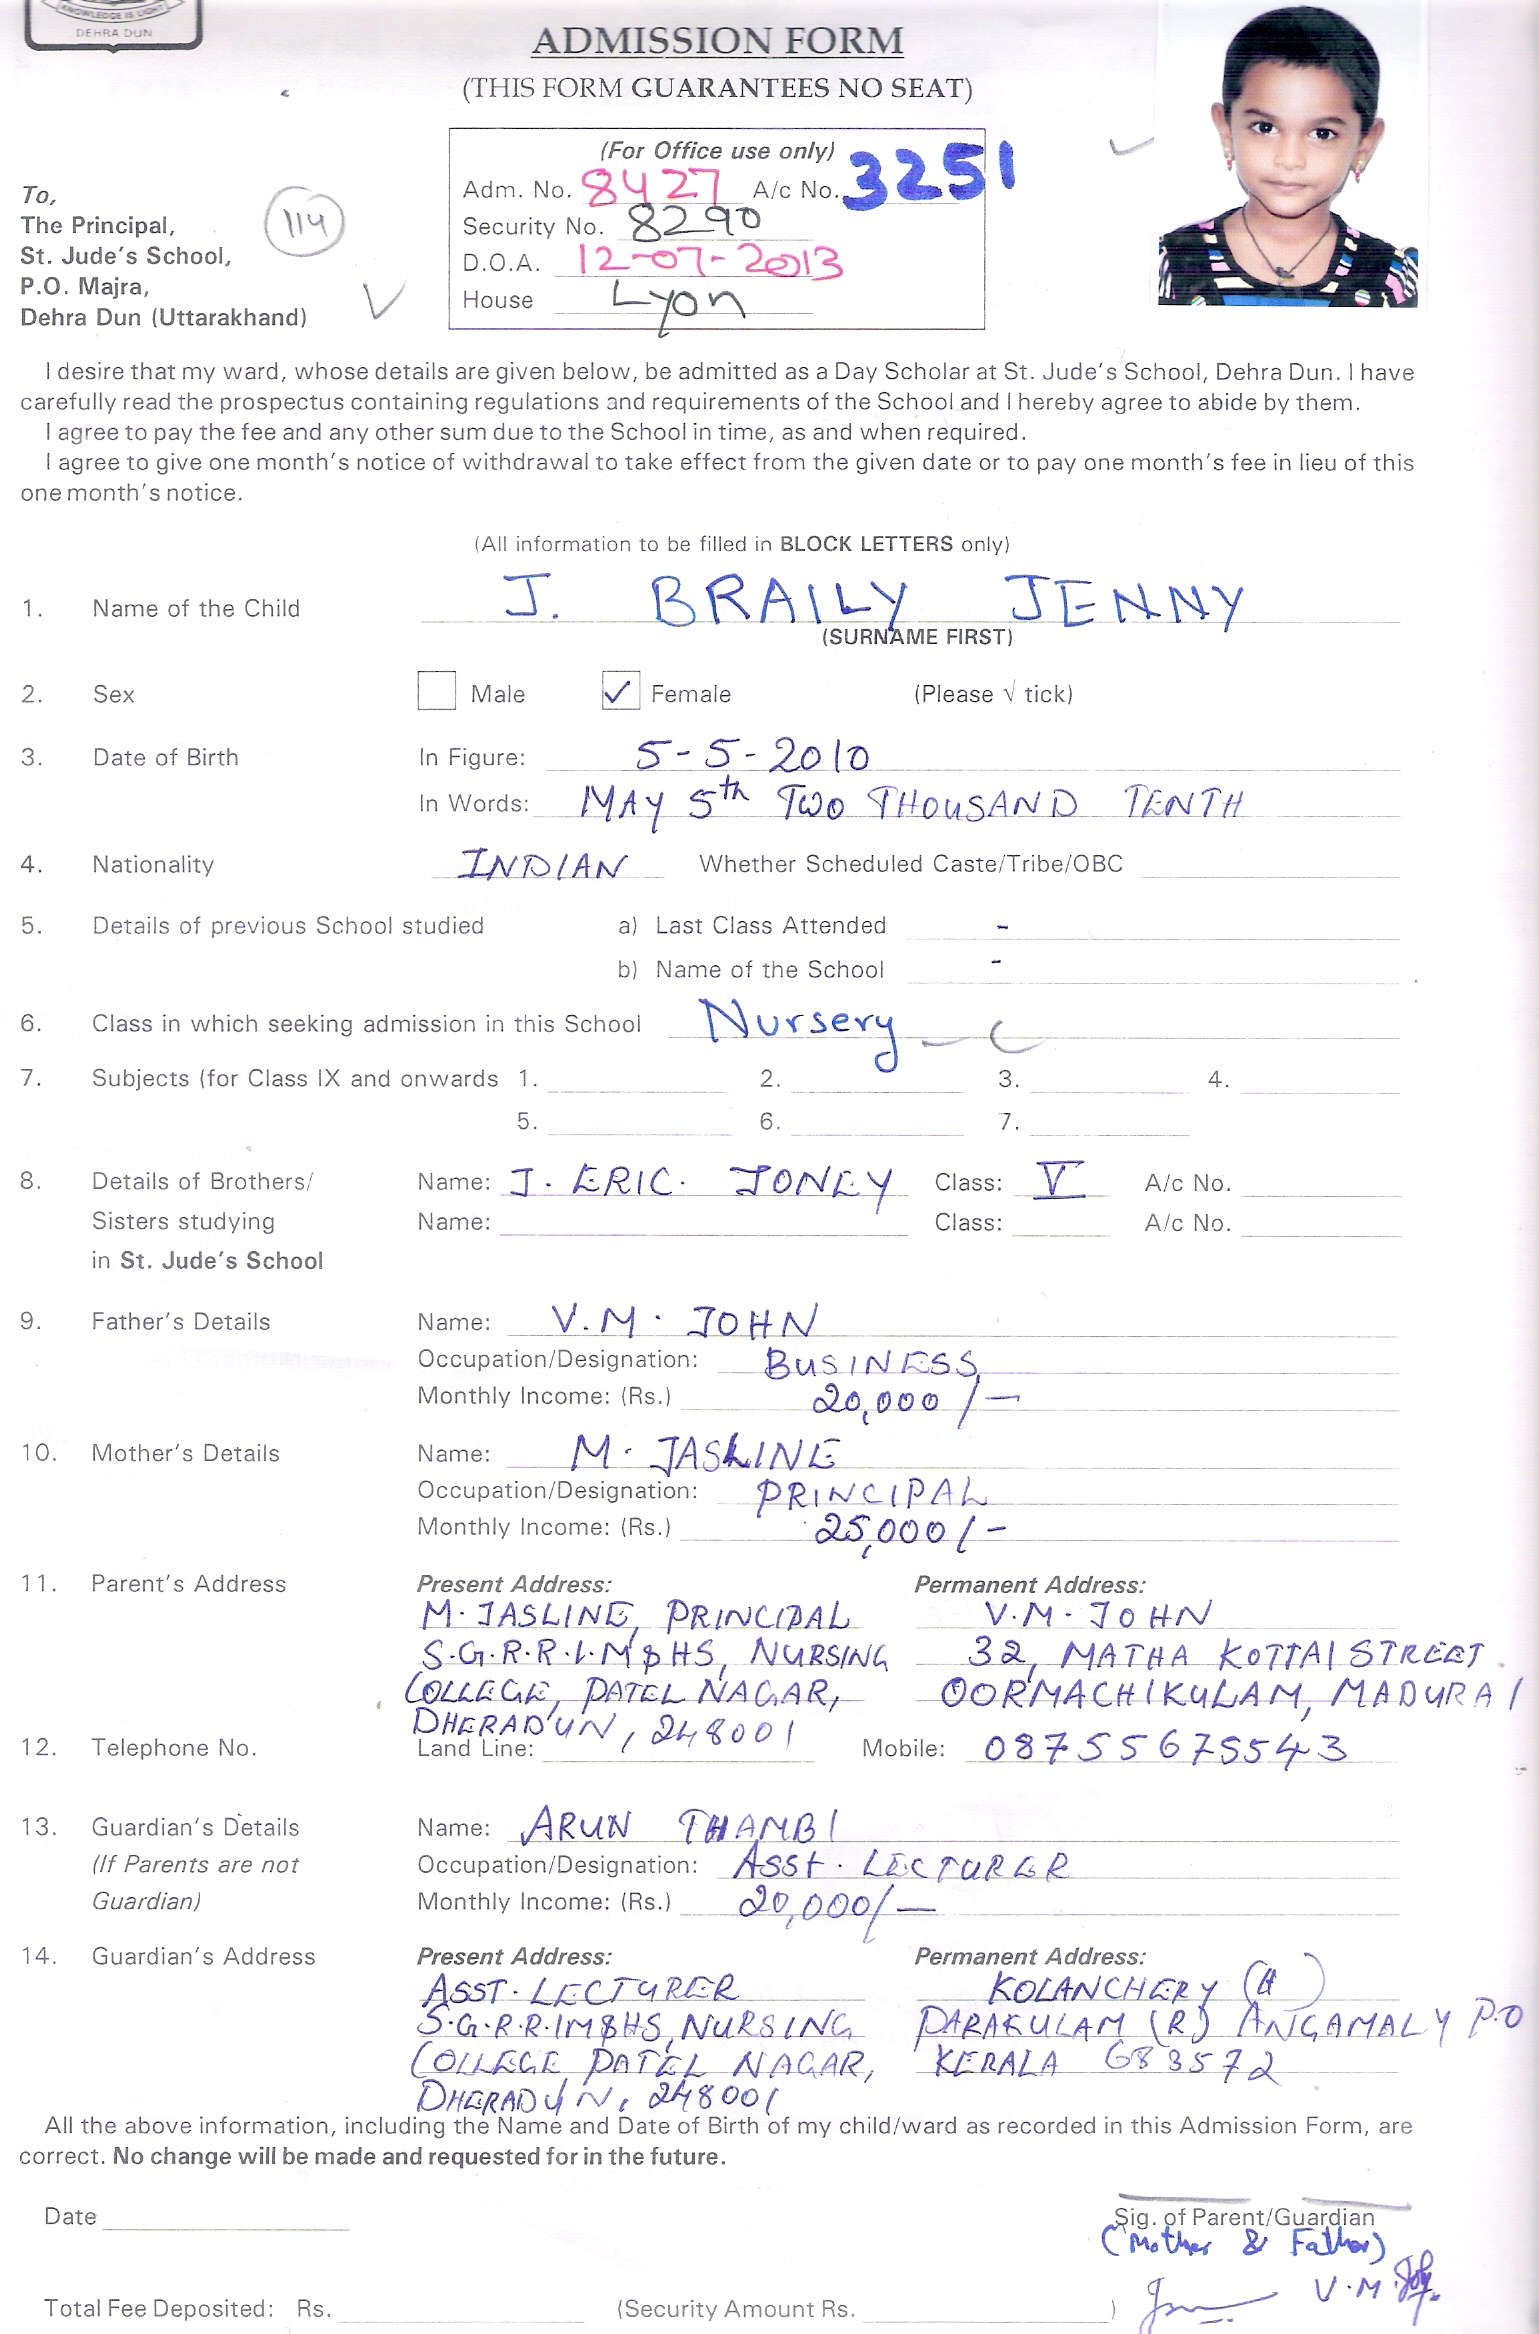 KNOWLEDGE IS LIGHT
DEHRA DUN
ADMISSION FORM
(THIS FORM GUARANTEES NO SEAT)
(For Office use only)
Adm. No. 8427 A/c No. 3251
Security No. 8290
D.O.A. 12-07-2013
House Lyon
To,
The Principal,
St. Jude's School,
P.O. Majra,
Dehra Dun (Uttarakhand)
114
I desire that my ward, whose details are given below, be admitted as a Day Scholar at St. Jude's School, Dehra Dun. I have
carefully read the prospectus containing regulations and requirements of the School and I hereby agree to abide by them.
I agree to pay the fee and any other sum due to the School in time, as and when required.
I agree to give one month's notice of withdrawal to take effect from the given date or to pay one month's fee in lieu of this
one month's notice.
(All information to be filled in BLOCK LETTERS only)
1. Name of the Child J. BRAILY JENNY
(SURNAME FIRST)
2. Sex Male ✓ Female (Please √ tick)
3. Date of Birth In Figure: 5-5-2010
In Words: MAY 5th TWO THOUSAND TENTH
4. Nationality INDIAN Whether Scheduled Caste/Tribe/OBC
5. Details of previous School studied a) Last Class Attended -
b) Name of the School -
6. Class in which seeking admission in this School Nursery
7. Subjects (for Class IX and onwards 1. 2. 3. 4.
5. 6. 7.
8. Details of Brothers/ Name: J. ERIC. JONEY Class: V A/c No.
Sisters studying Name: Class: A/c No.
in St. Jude's School
9. Father's Details Name: V.M. JOHN
Occupation/Designation: BUSINESS
Monthly Income: (Rs.) 20,000/-
10. Mother's Details Name: M. JASLINE
Occupation/Designation: PRINCIPAL
Monthly Income: (Rs.) 25,000/-
11. Parent's Address Present Address: Permanent Address:
M. JASLINE, PRINCIPAL V.M. JOHN
S.G.R.R.I.M$HS, NURSING 32, MATHA KOTTAI STREET
COLLEGE, PATEL NAGAR, OORMACHIKULAM, MADURAI
DHERADUN, 248001
12. Telephone No. Land Line: Mobile: 08755675543
13. Guardian's Details Name: ARUN THAMBI
(If Parents are not Occupation/Designation: ASST. LECTURER
Guardian) Monthly Income: (Rs.) 20,000/-
14. Guardian's Address Present Address: Permanent Address:
ASST. LECTURER KOLANCHERY (H)
S.G.R.R.IM$HS, NURSING PARAKULAM (R) ANGAMALY P.O
COLLEGE PATEL NAGAR, KERALA 683572
DHERADUN, 248001
All the above information, including the Name and Date of Birth of my child/ward as recorded in this Admission Form, are
correct. No change will be made and requested for in the future.
Date
Sig. of Parent/Guardian
(Mother & Father)
V.M.
Total Fee Deposited: Rs. (Security Amount Rs. )